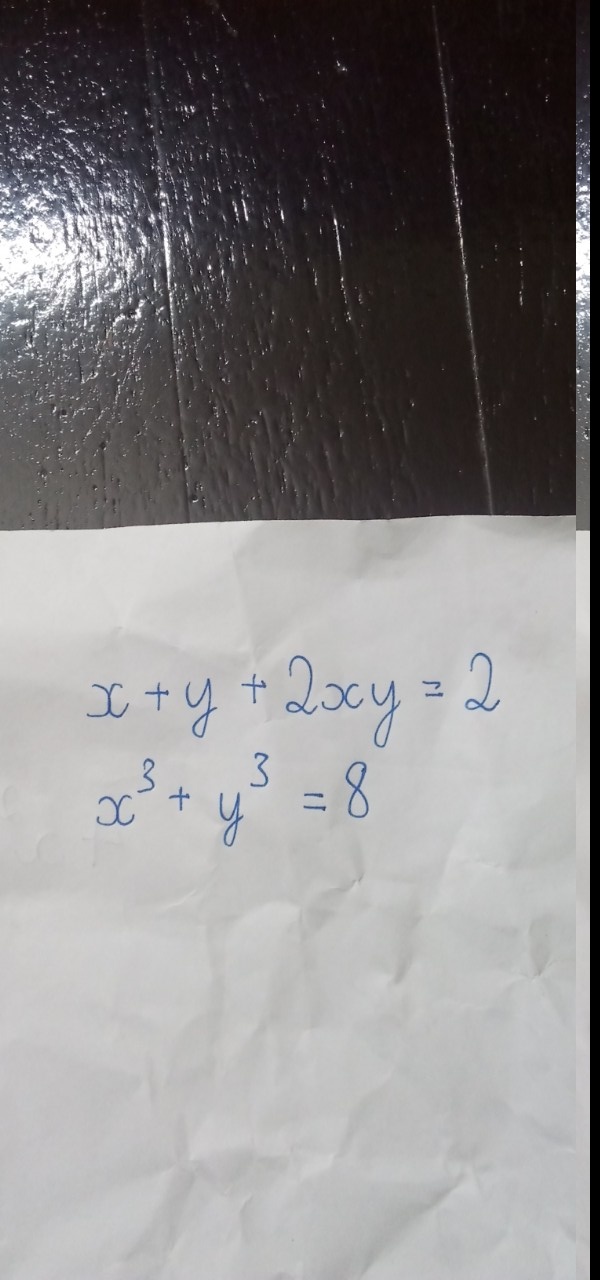 x + y + 2xy = 2
x³ + y³ = 8